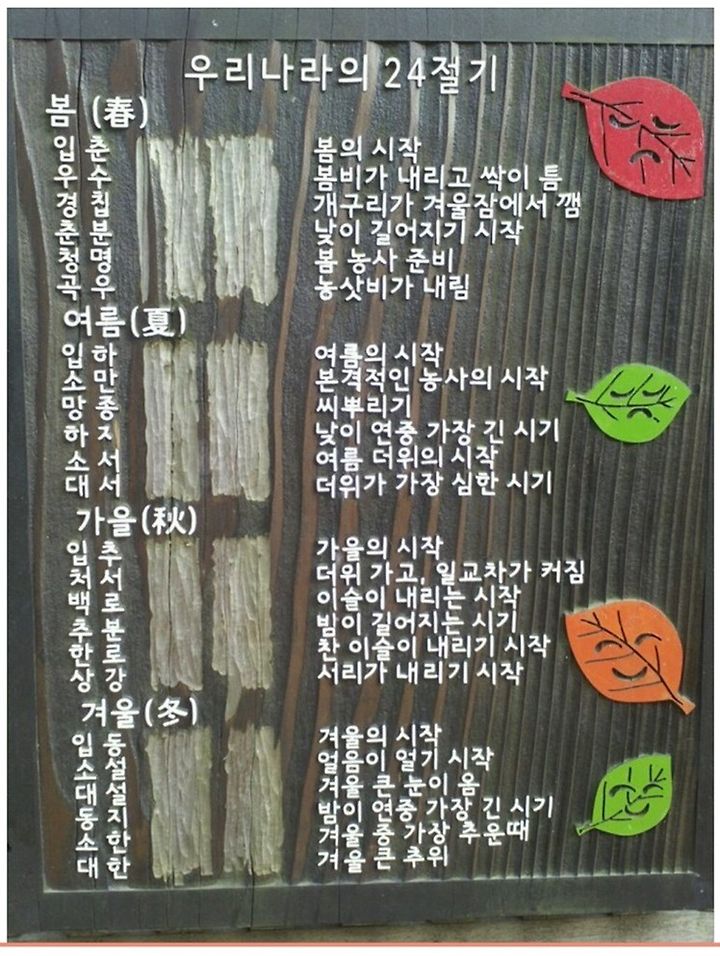 우리나라의 24절기
봄 (春)
입 춘 봄의 시작
우 수 봄비가 내리고 싹이 틈
경 칩 개구리가 겨울잠에서 깸
춘 분 낮이 길어지기 시작
청 명 봄 농사 준비
곡 우 농삿비가 내림
여름(夏)
입 하 여름의 시작
소 만 본격적인 농사의 시작
망 종 씨뿌리기
하 지 낮이 연중 가장 긴 시기
소 서 여름 더위의 시작
대 서 더위가 가장 심한 시기
가을(秋)
입 추 가을의 시작
처 서 더위 가고, 일교차가 커짐
백 로 이슬이 내리는 시작
추 분 밤이 길어지는 시기
한 로 찬 이슬이 내리기 시작
상 강 서리가 내리기 시작
겨울(冬)
입 동 겨울의 시작
소 설 얼음이 얼기 시작
대 설 겨울 큰 눈이 옴
동 지 밤이 연중 가장 긴 시기
소 한 겨울 중 가장 추운때
대 한 겨울 큰 추위